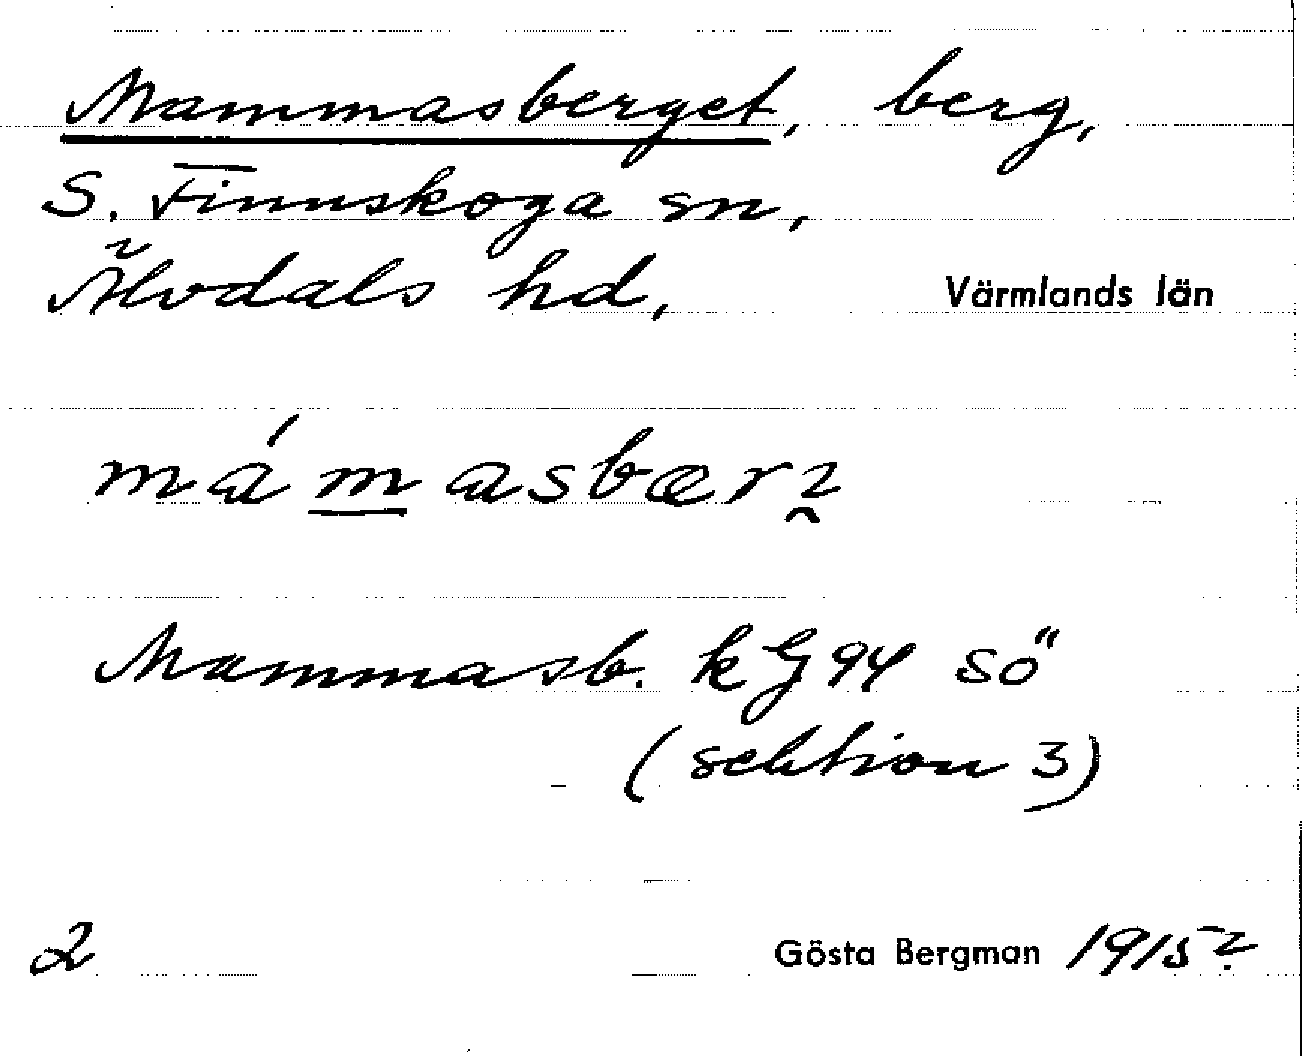 Mammasberget, berg,
S. Finnskoga sn,
Älvdals hd, Värmlands län
má m asbær
Mammasb. kG94 sö
(sektion 3)
2 Gösta Bergman 1915?